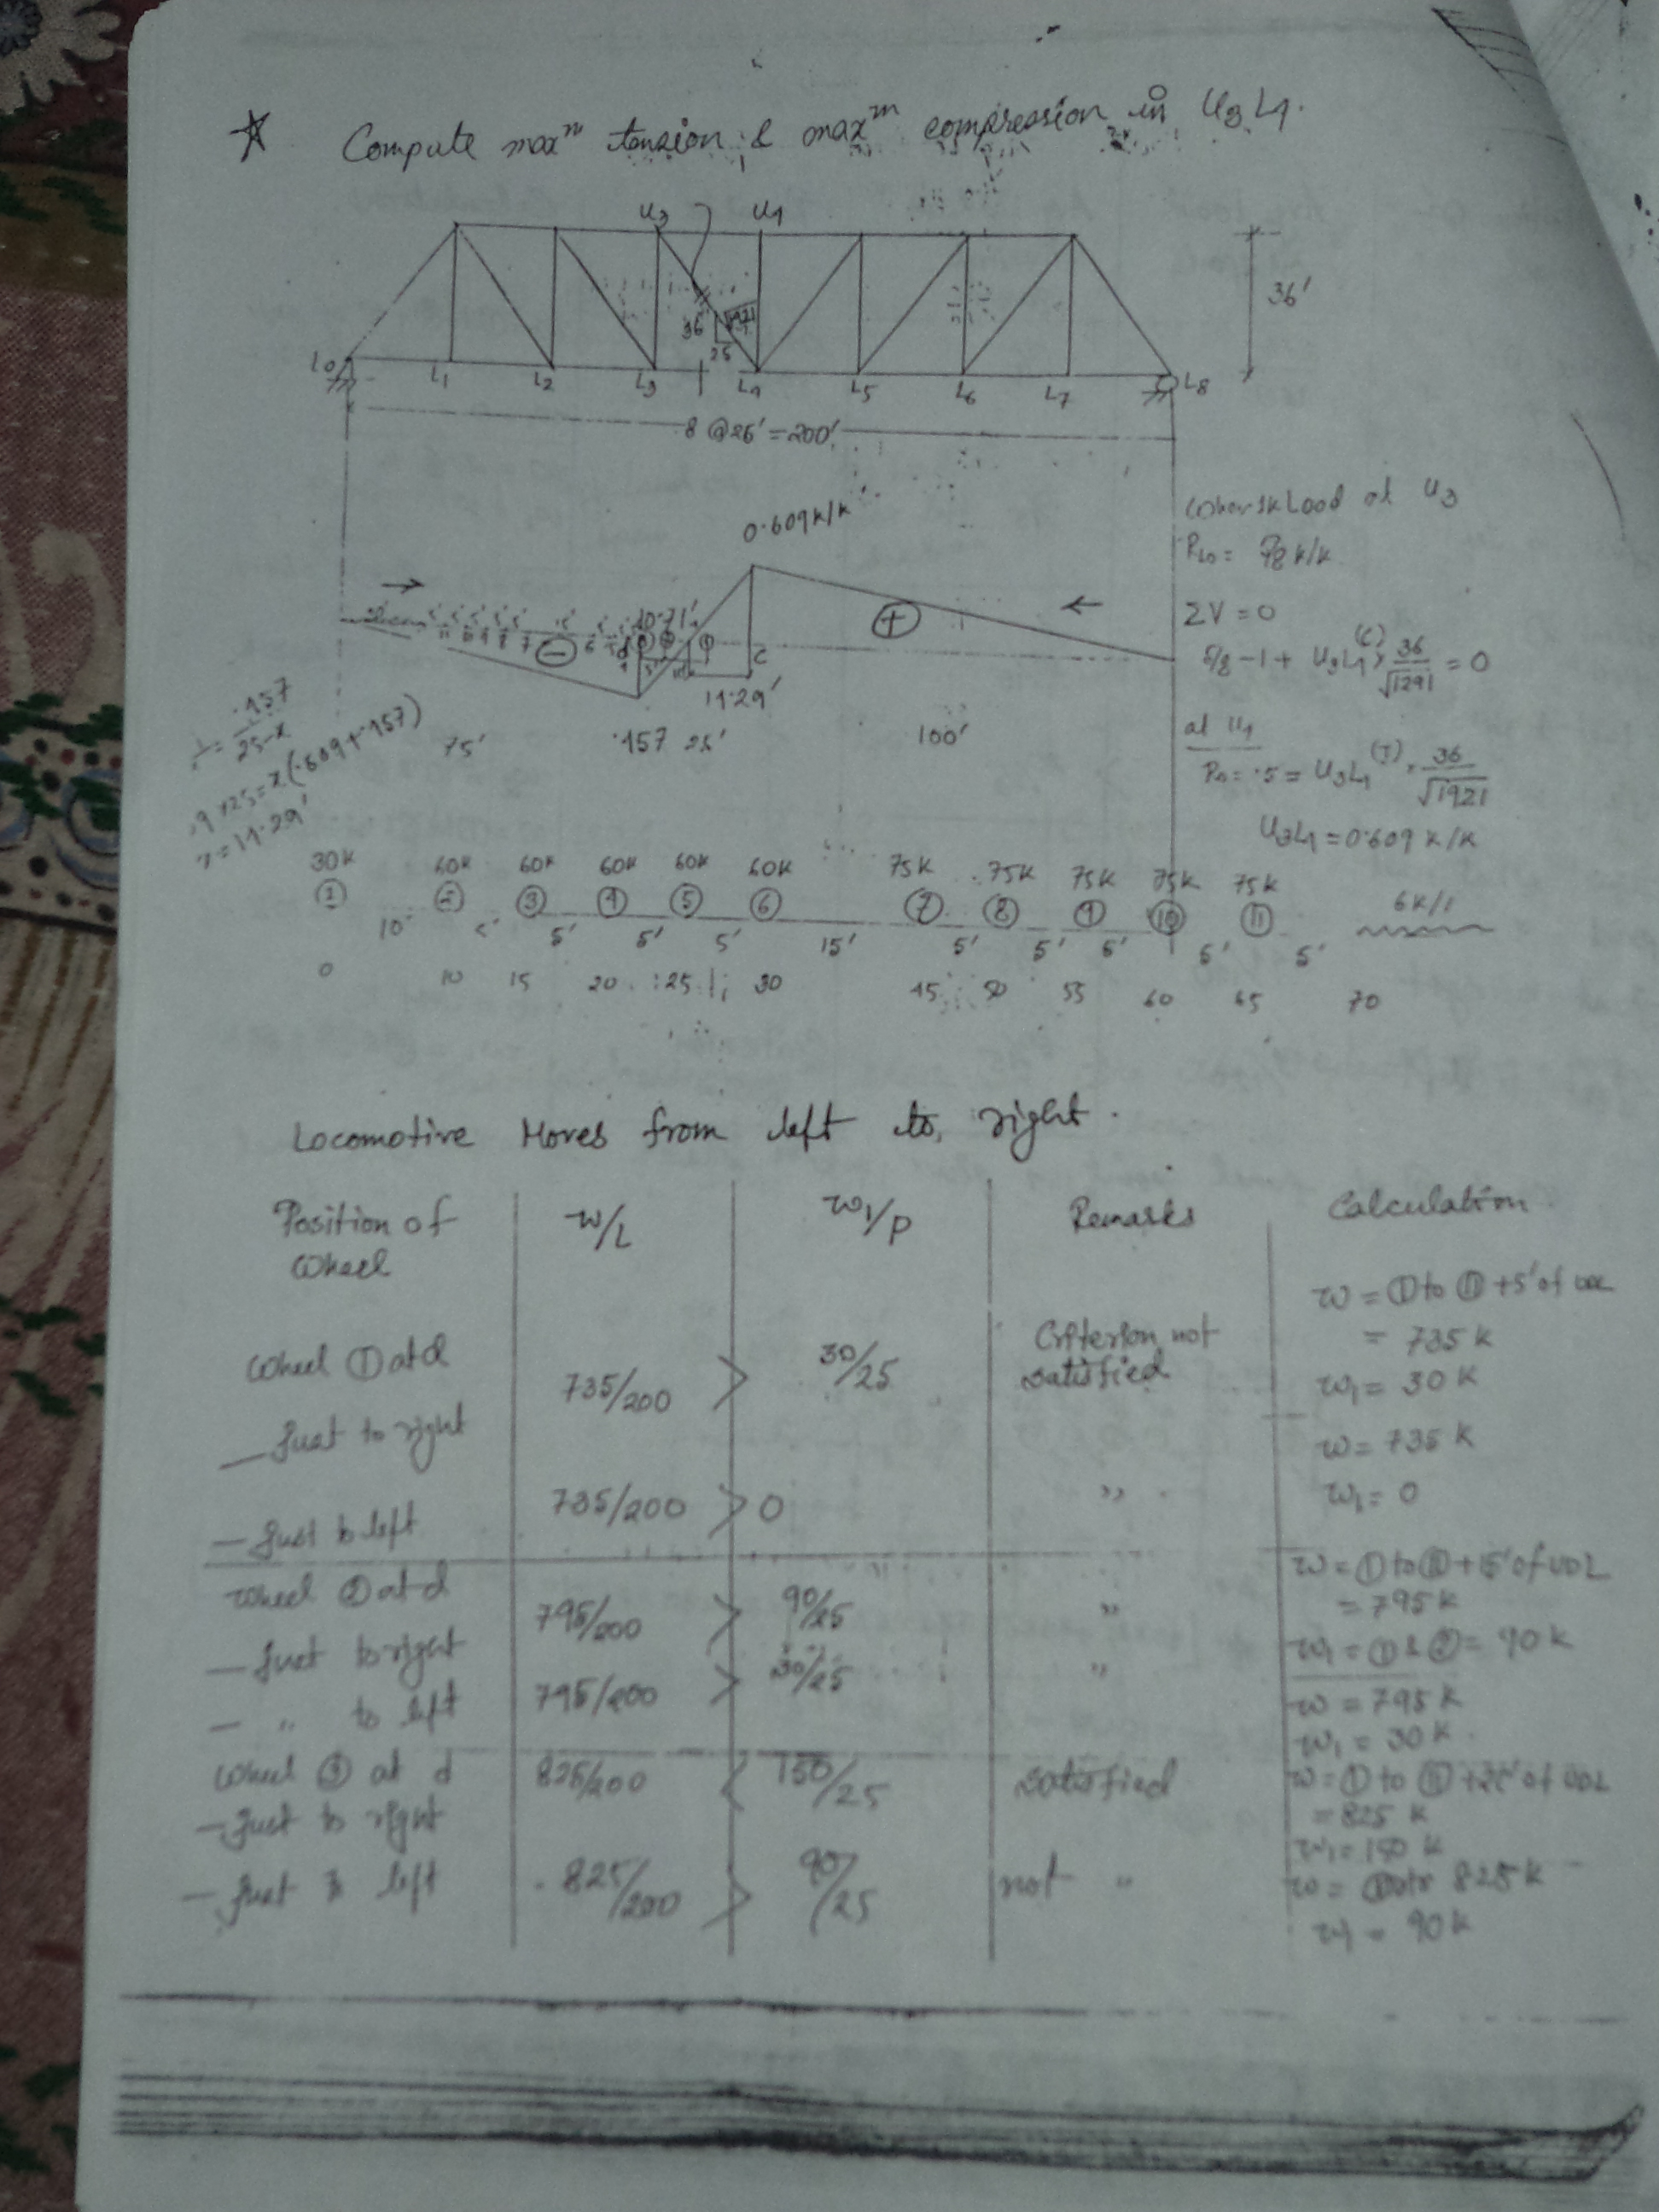 Compute maxᵐ tension & maxᵐ compression in U3L4.
U3 U4
36'
36 √1921
25
L0 L1 L2 L3 L4 L5 L6 L7 L8
8 @ 25' = 200'
0.609 k/k
When 1k Load at U3
RL0 = 5/8 k/k
ΣV = 0
5/8 - 1 + U3L4 (C) × 36/√1291 = 0
10.71'
d
c
14.29'
75' .157 25' 100'
at U4
R0 = .5 = U3L4 (T) × 36/√1921
U3L4 = 0.609 k/k
.157
25-x
25 = x(.609 + .157)
x = 14.29'
30k 60k 60k 60k 60k 60k 75k 75k 75k 75k 75k
① ② ③ ④ ⑤ ⑥ ⑦ ⑧ 9 ⑩ ⑪ 6k/'
10' 5' 5' 5' 5' 15' 5' 5' 5' 5' 5'
0 10 15 20 25 30 45 50 55 60 65 70
Locomotive Moves from left to right.
Position of Wheel w/L w1/p Remarks Calculation
w = ① to ⑪ + 5' of
= 735 k
Wheel ① at d
— Just to right 735/200 > 30/25 Criterion not satisfied w1 = 30 k
w = 735 k
— Just to left 735/200 > 0 " w1 = 0
Wheel ② at d w = ① to ⑪ + 15' of UDL
= 795 k
— Just to right 795/200 > 90/25 " w1 = ① & ② = 90 k
— " to left 795/200 > 30/25 " w = 795 k
w1 = 30 k
Wheel ③ at d w = ① to ⑪ + 20' of UDL
= 825 k
— Just to right 825/200 < 150/25 satisfied w1 = 150 k
— Just to left 825/200 > 90/25 not " w = 825 k
w1 = 90 k